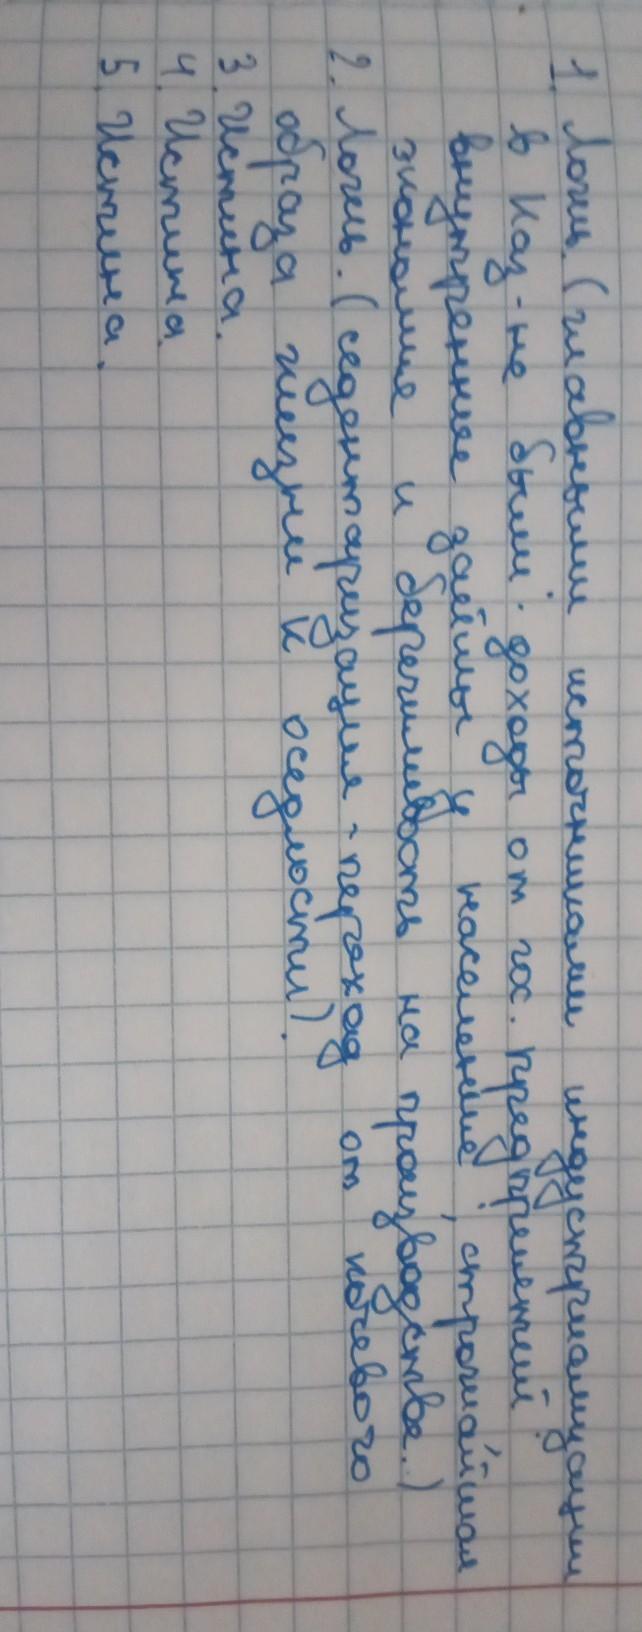 1. Ложь. (главными источниками индустриализации
в Каз-не были: доходы от гос. предприятий,
внутренние займы у населения, строжайшая
экономия и бережливость на производстве.)
2. Ложь. (седентаризация - переход от кочевого
образа жизни к оседлости).
3. Истина.
4. Истина.
5. Истина.